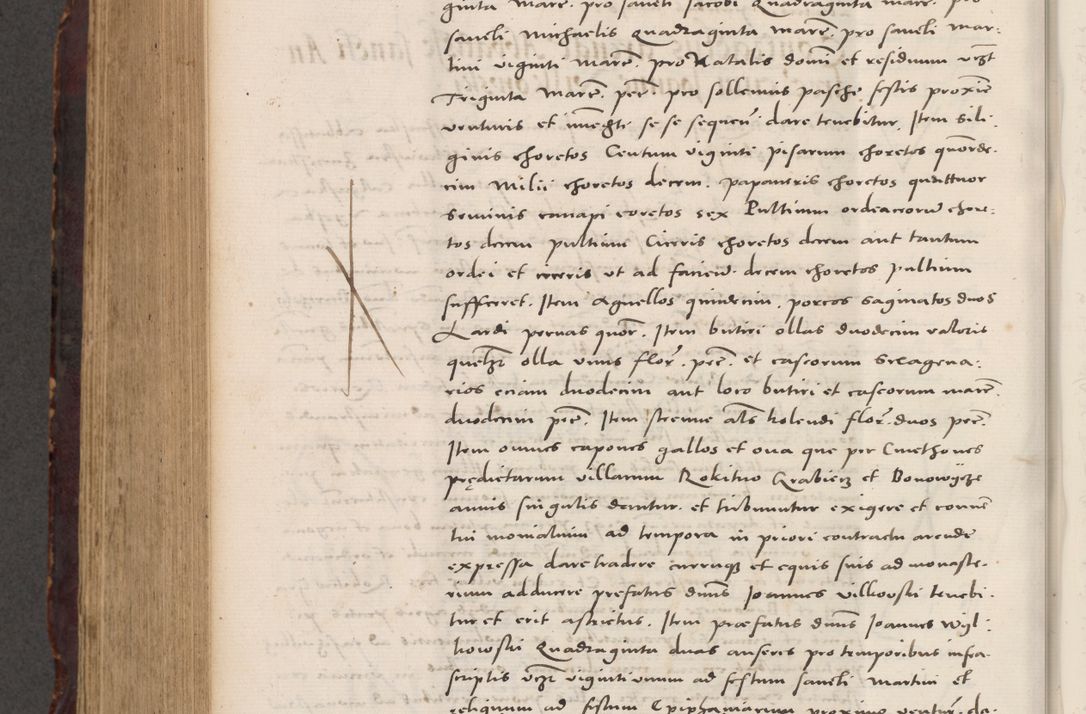 ginta marc. pro sancti Jacobi Quadraginta marc. pro
sancti Michaelis Quadraginta marc. pro sancti Mar-
tini viginti marc. pro Natalis domini et residuum
Triginta Marc. pec. pro sollemnis pasche festis proxime
venturis et se se sequen. dare tenebitur. Item sili-
ginis choretos Centum viginti pisarum choretos quorde-
cim Milii choretos decem. papaveris choretos quattuor
Seminis canapi coretos sex Pultium ordeaceorum chore-
tos decem pultium Ciceris choretos decem aut tantum
ordei et ciceris ut ad faciend. decem choretos pultium
sufficeret. Item Agnellos quindecim. porcos saginatos duos
Lardi pernas quor. Item butiri ollas duodecim valoris
quelibet olla unius flor. pec. et caseorum Scxagena-
rios eciam duodecim aut loco butiri et caseorum marc.
duodecim pec. Item strenne als kolendi flor. duos pec.
Item omnes capones gallos et ova que per Cmethones
prędictarum villarum Rokitno Grabierz et Bonowycze
annis singulis dentur. et tribuuntur exigere et conve-
tui monialium ad tempora in priori contractu arende
expressa dare tradere curruque et equis suis ad monaste-
rium adducere prefatus dnns Joannes vilkowski tenebi-
tur et erit astrictus. Item præfatus dnns Joannes wyl-
kowski Quadraginta duas anseres pro temporibus infra-
scriptis viginti unum ad festum sancti Martini et
reliquum ad festum Epiphaniarum proximo ventur. da-